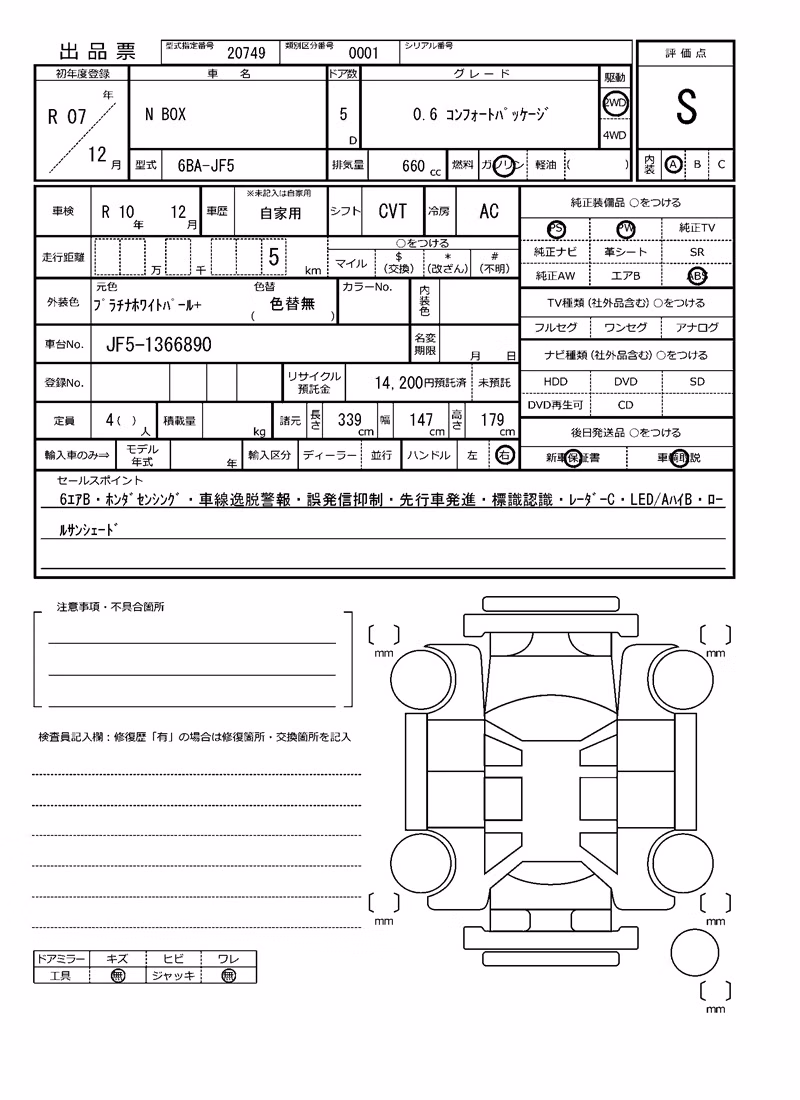 出品票
型式指定番号 20749 類別区分番号 0001 シリアル番号
評価点
初年度登録 車名 ドア数 グレード 駆動
R 07 年 12 月 N BOX 5 D 0.6 コンフォートパッケージ 2WD 4WD S
型式 6BA-JF5 排気量 660 cc 燃料 ガソリン 軽油 ( ) 内装 A B C
車検 R 10 年 12 月 車歴 ※未記入は自家用 自家用 シフト CVT 冷房 AC 純正装備品 ○をつける
PS PW 純正TV
走行距離 万 千 5 km ○をつける マイル $(交換) *(改ざん) #(不明) 純正ナビ 革シート SR
純正AW エアB ABS
外装色 元色 プラチナホワイトパール+ 色替 ( 色替無 ) カラーNo. 内装色 TV種類(社外品含む) ○をつける
フルセグ ワンセグ アナログ
車台No. JF5-1366890 名変期限 月 日 ナビ種類(社外品含む) ○をつける
登録No. リサイクル預託金 14,200円預託済 未預託 HDD DVD SD
DVD再生可 CD
定員 4( )人 積載量 kg 諸元 長さ 339 cm 幅 147 cm 高さ 179 cm 後日発送品 ○をつける
輸入車のみ⇒ モデル年式 年 輸入区分 ディーラー 並行 ハンドル 左 右 新車保証書 車輌取説
セールスポイント
6エアB・ホンダセンシング・車線逸脱警報・誤発信抑制・先行車発進・標識認識・レーダーC・LED/AハイB・ロー
ルサンシェード
注意事項・不具合箇所
mm mm
検査員記入欄：修復歴「有」の場合は修復箇所・交換箇所を記入
mm mm
ドアミラー キズ ヒビ ワレ
工具 無 ジャッキ 無
mm